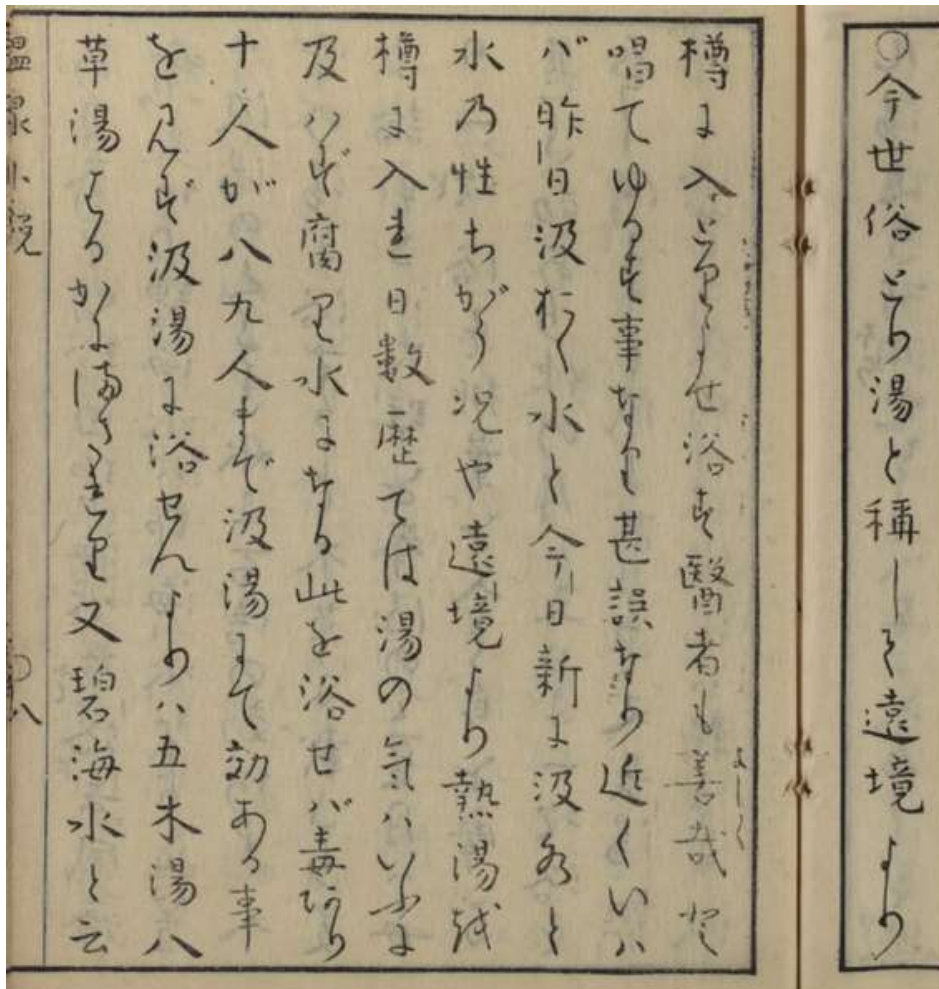 ○今世俗とり湯と称して遠境より
樽に入とりよせ浴す醫者も善哉と
唱てゆるす事なり甚誤なり近くいハ
バ昨日汲おく水と今日新に汲水と
水乃性ちがう况や遠境より熱湯を
樽に入れ日数歴ては湯の気ハいふに
及ハず腐り水になる此を浴せバ毒あり
十人が八九人まで汲湯にて効ある事
を見ず汲湯に浴せんよりハ五木湯八
草湯はるかにまされり又碧海水と云
温泉小説